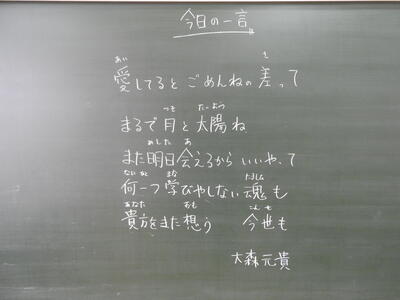 今日の一言
愛してるとごめんねの差って
まるで月と太陽ね
また明日会えるからいいや、て
何一つ学びやしない魂も
貴方をまた想う 今世も
大森元貴